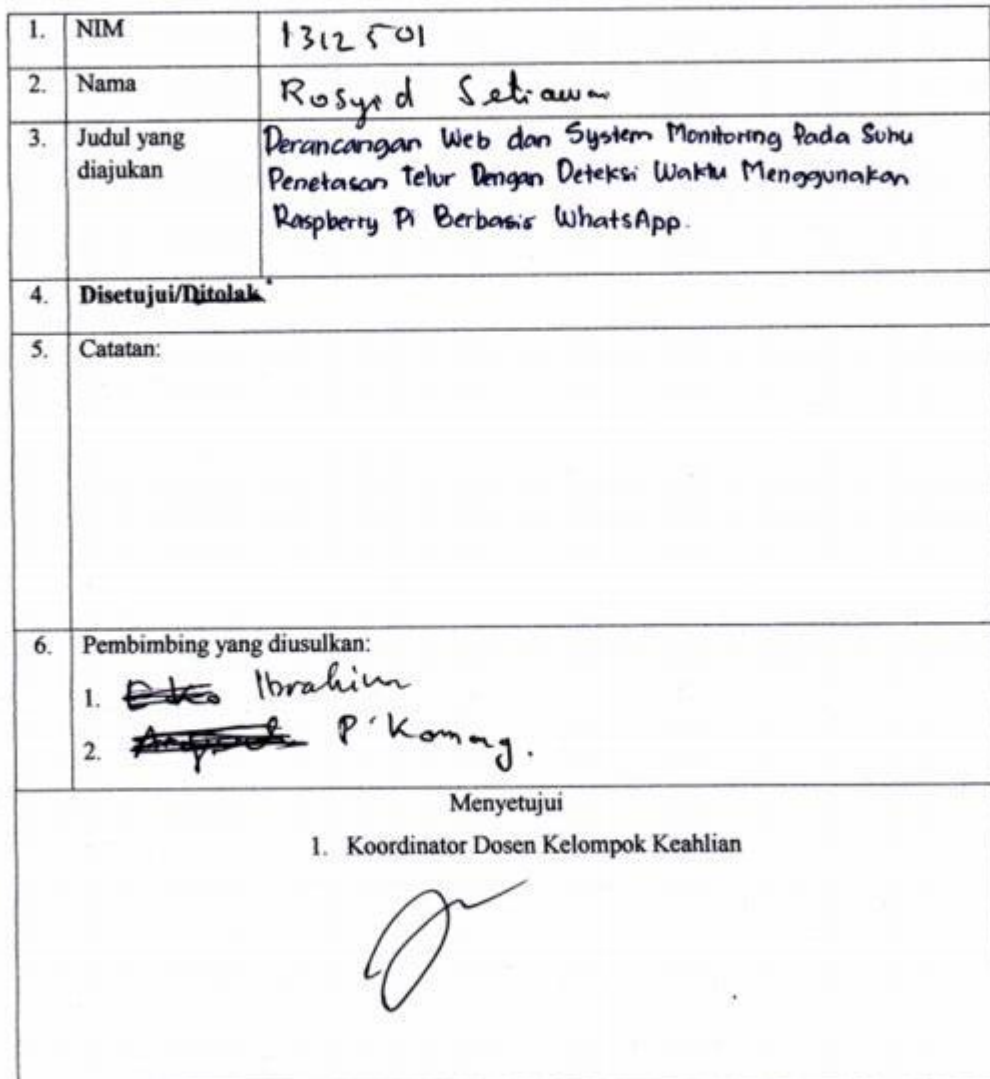 1. NIM 1312501
2. Nama Rosyid Setiawan
3. Judul yang diajukan
Perancangan Web dan System Monitoring Pada Suhu
Penetasan Telur Dengan Deteksi Waktu Menggunakan
Raspberry Pi Berbasis WhatsApp.
4. Disetujui/Ditolak*
5. Catatan:
6. Pembimbing yang diusulkan:
1. Ibrahim
2. P. Komang.
Menyetujui
1. Koordinator Dosen Kelompok Keahlian